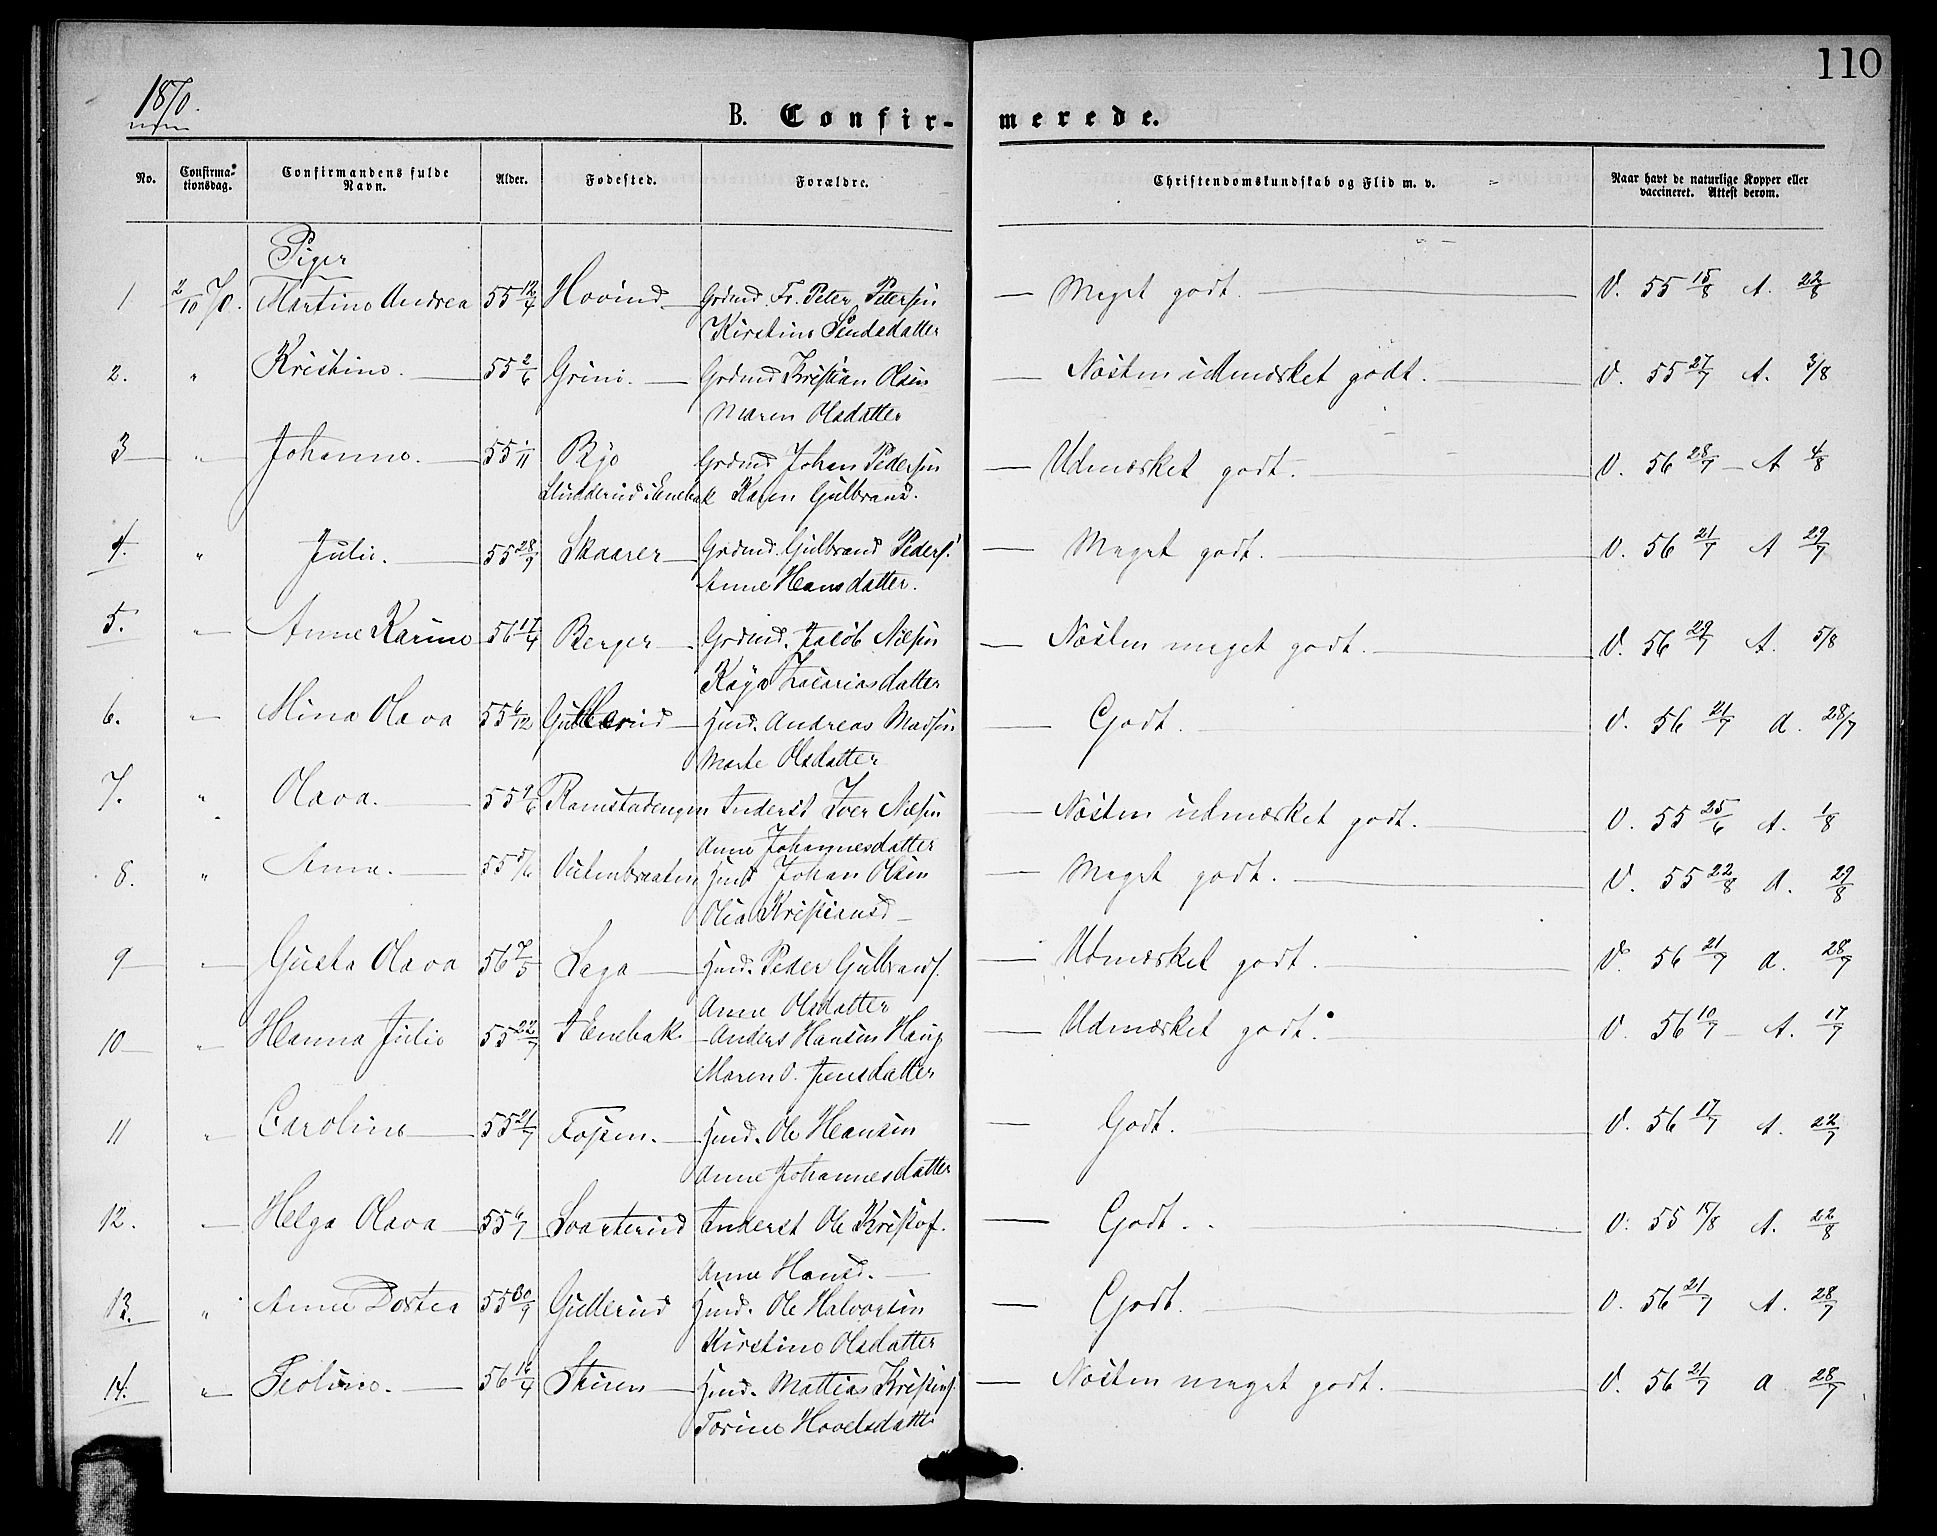 110
1870.
B. Confirmerede.
No. Confirmationsdag. Confirmandens fulde Navn. Alder. Fødested. Forældre. Christendomskundskab og Flid m. v. Naar havt de naturlige Kopper eller vaccineret. Attest derom.
Piger
1 2/10 70. Martine Andrea 55 12/4 Hovind Grdmd. Fr. Peter Petersen Meget godt. V. 55 15/8 A. 22/8
Kirstine
2. " Kristine. 55 2/6 Grini. Grdmd Kristian Olsen Næsten udmærket godt. V. 55 27/7 A. 3/8
Maren Olsdatter
3 " Johanne. 55 1/11 Grdmd Johan Pedersen Udmærket godt. V. 56 28/7 A 4/8
i Enebak Karen Gulbrand.
4. " Julie. 55 28/9 Skaarer Grdmd. Gulbrand Peders. Meget godt. V. 56 21/7 A 29/7
Anne Hansdatter.
5. " Anne Karine 56 17/4 Berger Grdmd. Jakob Nilsen Næsten meget godt. V. 56 29/7 A. 5/8
Kaya Zacariasdatter
6. " Mina Olava 55 6/12 Gullerud Hmd. Andreas Madsen Godt. V. 56 21/7 A. 28/7
Marte Olsdatter
7. " Olava. Ramstadengen Inderst Iver Nilsen Næsten udmærket godt. V. 55 25/6 A. 1/8
Anne Johannesdatter
8. " Anna. 55 5/6 Hmd Johan Olsen Meget godt. V. 55 22/8 A. 29/8
Olia Kristiansd
9 " Gusta Olava 56 7/5 Laga Hmd. Peder Gulbrands. Udmærket godt. V. 56 21/7 A. 28/7
Anne Olsdatter
10 " Hanna Julie 55 22/7 I Enebak. Anders Hansen Haug Udmærket godt. V. 56 10/7 A. 17/7
Maren O. Jensdatter
11 " Caroline 55 21/7 Fossen. Hmd. Ole Hansen Godt. V. 56 17/7 A. 22/7
Anne Johannesdatter
12. " Helga Olava 55 6/7 Svarterud Inderst Ole Kristof. Godt. V. 55 15/8 A. 22/8
Anne Hansd.
13. " Anne Dortea 55 30/9 Gullerud Hmd. Ole Halvorsen Godt. V. 56 21/7 A. 28/7
Kirstine Olsdatter
14. " 56 16/4 Skiren Hmd. Mattias Kristens. Næsten meget godt. V. 56 21/7 A 28/7
Torine Hovelsdatter